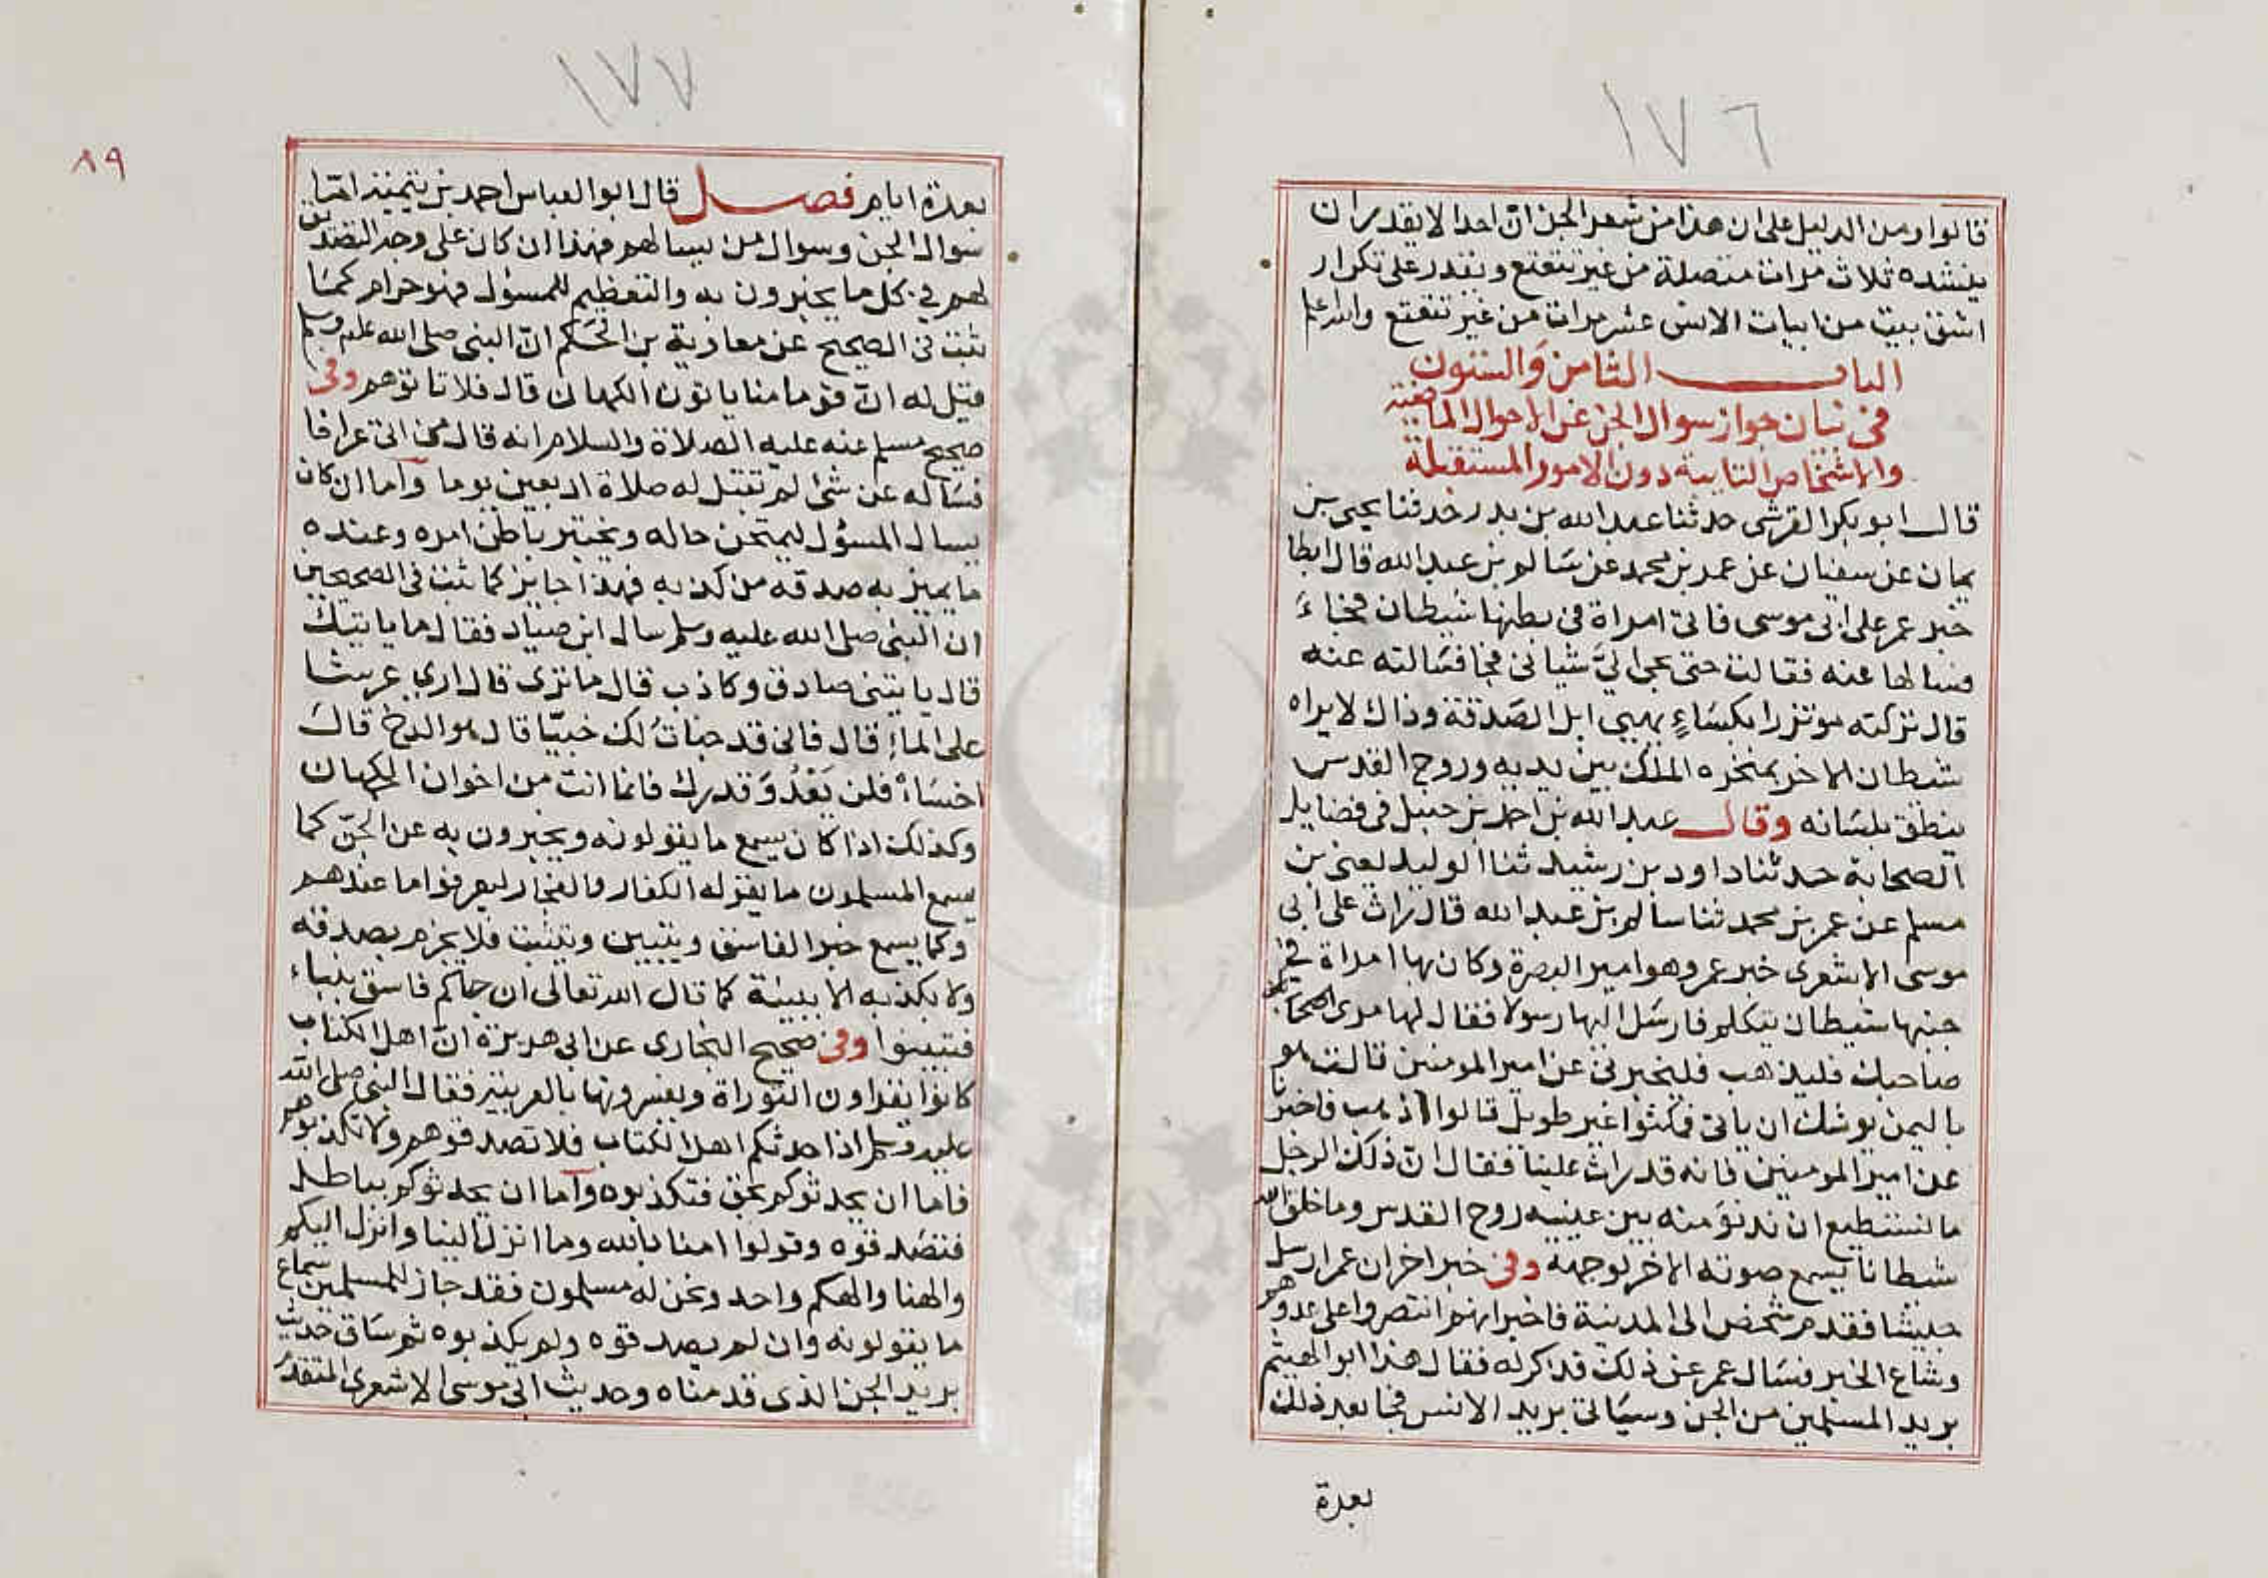 ١٧٦
قالوا ومن الدليل على ان هذا من شعر الجن ان احدا لا يقدر ان
ينشده ثلاث مرات متصلة من غير تتعتع ويقدر على تكرار
اشق بيت من ابيات الانس عشر مرات من غير تتعتع والله اعلم
الباب الثامن والستون
في بيان جواز سوال الجن عن الاحوال الماضية
والاشخاص النايية دون الامور المستقبلة
قال ابو بكر القرشى حدثنا عبد الله بن بدر حدثنا يحيى بن
يمان عن سفيان عن عمر بن محمد عن سالم بن عبد الله قال ابطا
خبر عمر على ابى موسى فاتى امراة في بطنها شيطان فجاء
فسالها عنه فقالت حتى يجى اليّ شيطانى فجا فسالته عنه
قال تركته موتزرا بكساءٍ يهيى ابل الصدقة وذاك لا يراه
شيطان الا خر بمنخره الملك بين يديه وروح القدس
ينطق بلسانه وقال عبد الله بن احمد بن حنبل في فضايل
الصحابة حدثنا داود بن رشيد ثنا الوليد يعنى بن
مسلم عن عمر بن محمد ثنا سالم بن عبد الله قال راث على ابى
موسى الاشعرى خبر عمر وهو امير البصرة وكان بها امراة في
جنبها شيطان يتكلم فارسل اليها رسولا فقال لها مرى
صاحبك فليذهب فليخبرنى عن امير المومنين قالت هو
باليمن يوشك ان ياتى فمكثوا غير طويل قالوا اذهب فاخبرنا
عن امير المومنين فانه قد راث علينا فقال ان ذلك الرجل
ما نستطيع ان ندنو منه بين عينيه روح القدس وما خلق الله
شيطانا يسمع صوته الا خر لوجهه وفى خبر اخر ان عمر ارسل
جيشا فقدم شخص الى المدينة فاخبر انهم انتصروا على عدوهم
وشاع الخبر فسال عمر عن ذلك فذكر له فقال هذا ابو الهيثم
بريد المسلمين من الجن وسياتى بريد الانس فجا بعد ذلك
بعدة
١٧٧
٨٩
بعدة ايام فصل قال ابو العباس احمد بن تيمية اما
سوال الجن وسوال من يسالهم فهذا ان كان على وجه التصديق
لهم في كل ما يخبرون به والتعظيم للمسؤل فهو حرام كما
ثبت في الصحيح عن معاوية بن الحكم ان النبى صلى الله عليه وسلم
قيل له ان قوما منا ياتون الكهان قال فلا تاتوهم وفى
صحيح مسلم عنه عليه الصلاة والسلام انه قال من اتى عرافا
فساله عن شئ لم تقبل له صلاة اربعين يوما وأما ان كان
يسال المسؤل ليمتحن حاله ويختبر باطن امره وعنده
ما يميز به صدقه من كذبه فهذا جايز كما ثبت في الصحيحين
ان النبى صلى الله عليه وسلم سال ابن صياد فقال ما ياتيك
قال ياتينى صادق وكاذب قال ما ترى قال ارى عرشا
على الماء قال فانى قد خبات لك خبيّا قال هو الدخ قال
اخساء فلن تعدو قدرك فانما انت من اخوان الكهان
وكذلك اذا كان يسمع ما يقولونه ويخبرون به عن الجنّ كما
يسمع المسلمون ما يقوله الكفار والفجار ليعرفوا ما عندهم
وكما يسمع خبر الفاسق ويتبين ويتثبت فلا يجزم بصدقه
ولا بكذبه الا ببينة كما قال الله تعالى ان جاكم فاسق بنباء
فتبينوا وفى صحيح البخارى عن ابى هريرة ان اهل الكتاب
كانوا يقراون التوراة ويفسرونها بالعربية فقال النبى صلى الله
عليه وسلم اذا حدثكم اهل الكتاب فلا تصدقوهم ولا تكذبوهم
فاما ان يحدثوكم بحق فتكذبوه وأما ان يحدثوكم بباطل
فتصدقوه وقولوا امنا بالله وما انزل الينا وانزل اليكم
والهنا والهكم واحد ونحن له مسلمون فقد جاز للمسلمين سماع
ما يقولونه وان لم يصدقوه ولم يكذبوه ثم ساق حديث
بريد الجن الذى قدمناه وحديث ابى موسى الاشعرى المتقدم